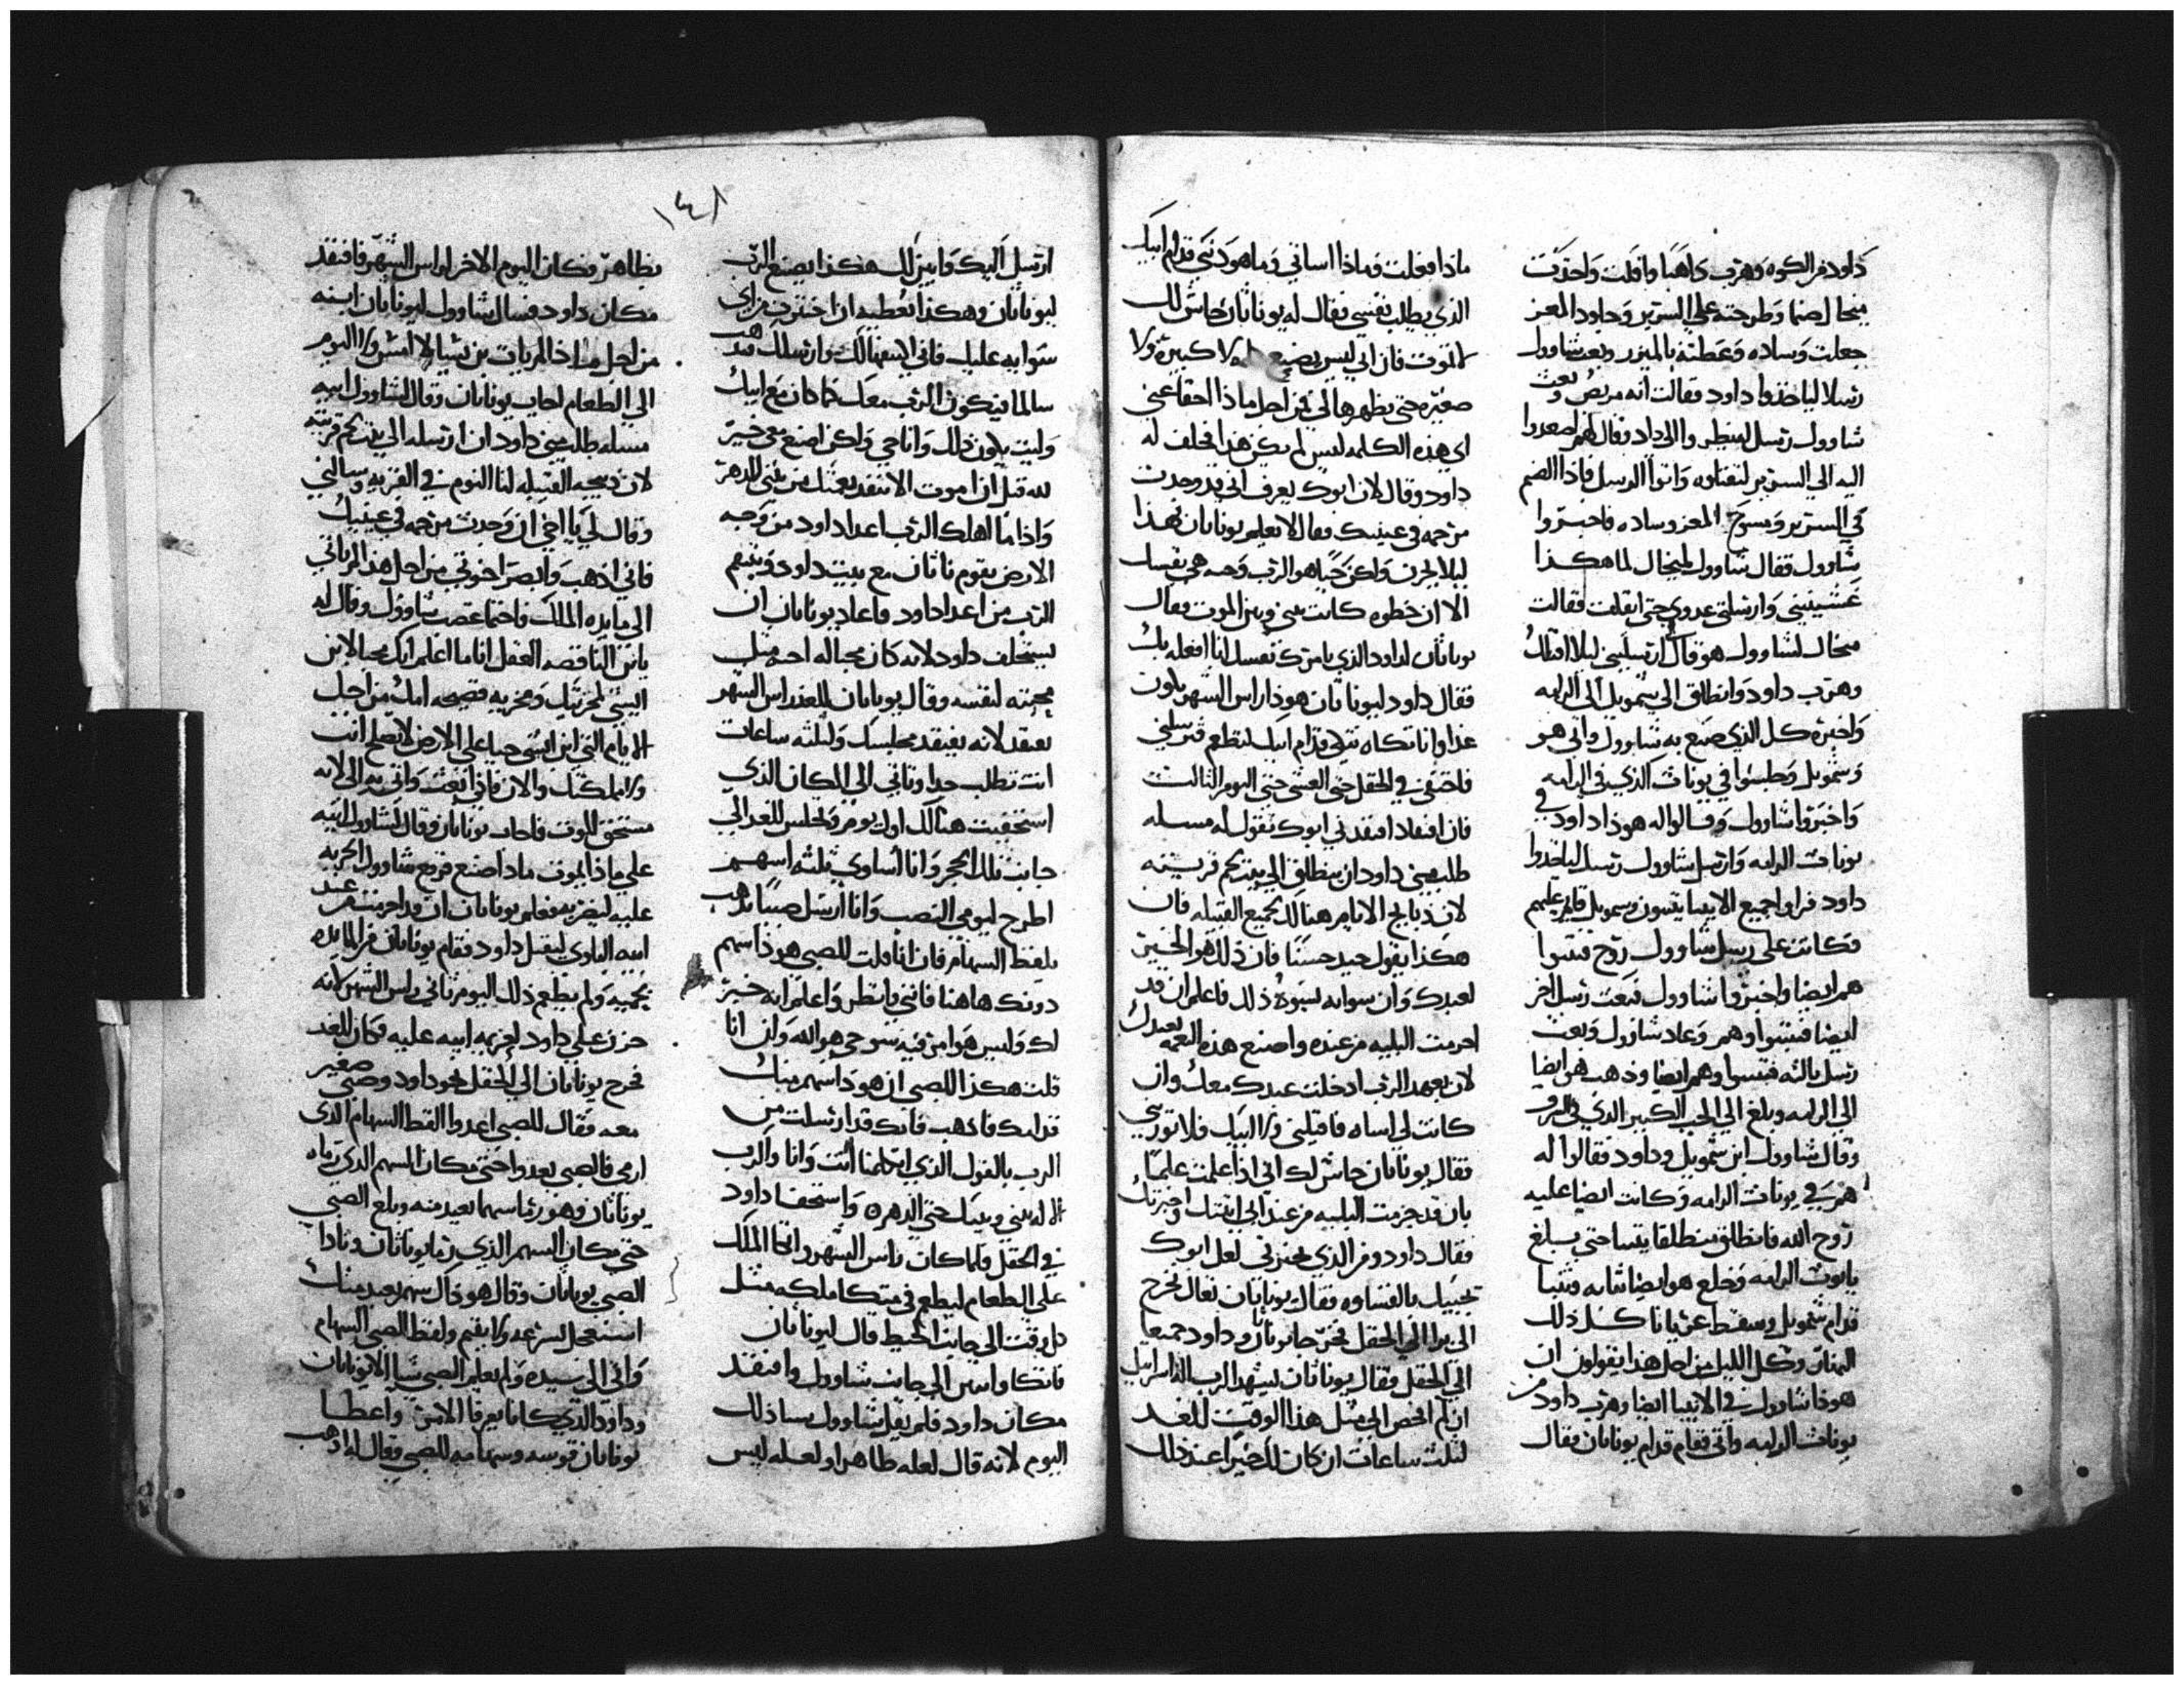 داود من الكوه وهرب ذاهبا وافلت واخدت
منخال صنما وطرحته علي السرير وجلود المعز
جعلت وساده وغطته بالميزر وبعث شاوول
رسلا لياخذوا داود فقالت انه مريض وبعث
شاوول رسل لينظروا الي داد وقال لهم اصعدوا
اليه الي السرير لنقتلوه واتوا الرسل فاذا الصنم
في السرير ومسوح المعز وساده فاخبروا
شاوول فقال شاوول لمنخال لما هكذا
غشيتيني وارسلتي عدوي حتي افلت فقالت
منخال لشاوول هو قال ارسليني ليلا اقتلك
وهرب داود وانطلق الي شمويل الي الرامه
واخبره كل الذي صنع به شاوول واتي هو
وشمويل وجلسوا في يونات الذي في الرامه
واخبروا شاوول وقالوا له هوذا داود في
يونات الرامه وارسل شاوول رسل لياخدوا
داود فراوا جميع الانبيا يتنبون وسمويل قايم عليهم
فكانت علي رسل شاوول روح فتنبوا
هم ايضا واخبروا شاوول فبعث رسل اخر
ايضا فتنبوا وهم وعاد شاوول وبعث
رسل تالثه فتنبوا وهم ايضا وذهب هو ايضا
الي الرامه وبلغ الي الجب الكبير الذي في
وقال شاوول اين شمويل وداود فقالوا له
هم في يونات الرامه وكانت ايضا عليه
روح الله فانطلق منطلقا يتنبا حتي بلغ
يايوت الرامه وخلع هو ايضا ثيابه وتنبا
قدام شمويل وسقط عريانا كل ذلك
النهار وكل الليل من اجل هذا يقولون ان
هوذا شاوول في الانبيا ايضا وهرب داود من
يونات الرامه واتي فقام قدام يوناثان وقال
ماذا فعلت وماذا اساتي وما هو ذنبي قدام ابيك
الذي يطلب نفسي فقال له يوناثان حاش لك
لا تموت فان ابي ليس يصنع كبيره ولا
صغيره حتي يظهرها لي من اجل ماذا اخفا عني
ابي هذه الكلمه ليس لم يكن هذا فحلف له
داود وقال لان ابوك يعرف اني قد وجدت
مرحمه في عينيك وقال لا يعلم يوناثان بهذا
ليلا يحزن ولكن حيا هو الرب وحيه هي نفسك
الا ان خطوه كانت بيني وبين الموت فقال
يوناثان لداود الذي يامرك نفسك انا افعله بك
فقال داود ليوناثان هوذا راس الشهر يكون
غدا وانا تكاه قدام ابيك لنطعم فترسلني
فاختفي في الحقل حتي العشي حتي اليوم الثالث
فان افتقاد افتقدني ابوك تقول له مسله
طلب مني داود ان ينطلق الي بيت لحم قريته
لان ذبايح الايام هنالك لجميع القبيله فان
هكذا يقول جيد حسنا فان ذلك هو الخير
لعبدك وان سوابه يسوه ذلك فاعلم ان قد
اجرمت البليه من عنده واصنع هذه النعمه بعبدك
لان بعهد الرب ادخلت عبدك معك وان
كانت لي اساه فاقتلني ولا ابيك فلا
فقال يوناثان حاش لك اني اذا علمت علما
بان قد جزمت البليه من عند ابي اتيتك واخبرتك
فقال داود ومن الذي يخبرني لعل ابوك
يجيبك بالقساوه فقال يوناثان تعال نخرج
الي برا الي الحقل فخرجا يوناثان وداود جميعا
الي الحقل فقال يوناثان يشهد الرب اله اسراييل
ان لم افحص ابي مثل هذا الوقت للغد
لثلت ساعات ان كان لك خيرا عند ذلك
١٤٨
ارسل اليك وابين لك هكذا يصنع الرب
ليوناثان وهكذا
سوا به عليك فاني لك وارسلك فتذهب
سالما فيكون الرب معك كما كان مع ابيك
وليت يكون ذلك وانا حي ولكن اصنع معي خير
لله قبل ان اموت الا تنفد نعمتك من بيتي للدهر
واذا ما اهلك الرب اعدا داود من وجه
الارض يقوم ناثان مع بيت داود وينتقم
الرب من اعدا داود وعاد يوناثان ان
يستحلف داود لانه كان محبا له احبه مثل
محبته لنفسه وقال يوناثان للغد راس الشهر
تفتقد لانه يفتقد مجلسك ولثلثه ساعات
انت تطلب جدا وتاتي الي المكان الذي
استخفيت هنالك اول يوم وتجلس للغد الي
جانب تلك الحجر وانا اساوي ثلثه اسهم
اطرح ليرمي النصب وانا ارسل صبيا يذهب
يلقط السهام فان انا قلت للصبي هوذا سهم
دونك هاهنا فاتني وانظر واعلم انه خير
لك وليس هو امر فيه سو حي هو الله وان انا
قلت هكذا للصبي ان هوذا سهم منك
قدامك فاذهب فانك قد ارسلت من
الرب بالقول الذي تكلمنا انت وانا والرب
الاله بيني وبينك حتي الدهر واستخفا داود
في الحقل ولما كان راس الشهر واتكا الملك
علي الطعام ليطعم في متكا ملكه مثل
كل وقت الي جانب الحيط قال ليوناثان
فاتكا وابنير الي جانب شاوول وافتقد
مكان داود فلم يقل شاوول بسا ذلك
اليوم لانه قال لعله طاهر او لعله ليس
بطاهر وكان اليوم الاخر لراس الشهر وافتقد
مكان داود فسال شاوول ليوناثان ابنه
من اجل ماذا لم يات بن يشيا لا امس ولا اليوم
الي الطعام اجاب يوناثان وقال لشاوول ابيه
مسله طلب مني داود ان ارسله الي بيت لحم قريته
لان ذبيحه القبيله لنا اليوم في القريه وسالني
وقال لي يا اخي ان وجدت مرحمه في عينيك
فاني اذهب وابصر اخوتي من اجل هذا لم ياتي
الي مايده الملك فاحتما غضب شاوول وقال له
يابن الناقصه العقل انا ما اعلم انك محبا لابن
ايشي لخزيك ومخزيه فضيحه امك من اجل
الايام التي ابن ايشي حيا علي الارض لا تصلح انت
ولا مملكتك والان فاني ابعث واتي به الي لانه
مستحق للموت فاجاب يوناثان وقال لشاوول ابيه
علي ماذا يموت ماذا صنع فرفع شاوول الحربه
عليه ليضربه فعلم يوناثان ان قد اجرمت من عند
ابيه البلوي ليقتل داود فقام يوناثان من المايده
بحميه ولم يطعم ذلك اليوم ثاني راس الشهر لانه
حزن علي داود لعزيمه ابيه عليه وكان للغد
فخرج يوناثان الي الحقل نحو داود وصبي صغير
معه فقال للصبي اعدوا القط السهام الذي
ارمي فالصبي يعدوا حتي مكان السهم الذي رماه
يوناثان وهو رما سهما بعيد منه وبلغ الصبي
حتي مكان السهم الذي رما يوناثان ونادا
الصبي يوناثان وقال هوذاك سهم بعيد منك
استعجل بسرعه ولا تقيم ولقط الصبي السهام
واتي الي سيده ولم يعلم الصبي شيا الا يوناثان
وداود الذي كانا يعرفا الامر واعطا
يوناثان قوسه وسهامه للصبي وقال له اذهب